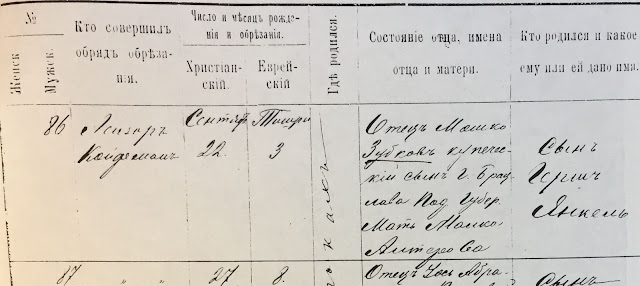 №
Женск
Мужск.
Кто совершилъ
обрядъ обрѣза-
нія.
Число и мѣсяцъ рожде-
нія и обрѣзанія.
Христіан-
скій
Еврей-
скій
Гдѣ родился.
Состояніе отца, имена
отца и матери.
Кто родился и какое
ему или ей дано имя.
86
Лейзеръ
Койфманъ
Сентяб
22.
Тишри
3
Отецъ Мошко
Зубковъ купече-
скій сынъ Г. Брац
лава Под Губер
Мать Малка
Антерова
Сынъ
Герш
Янкель
87
" "
27
8.
Отецъ Іось Абра-
Сынъ